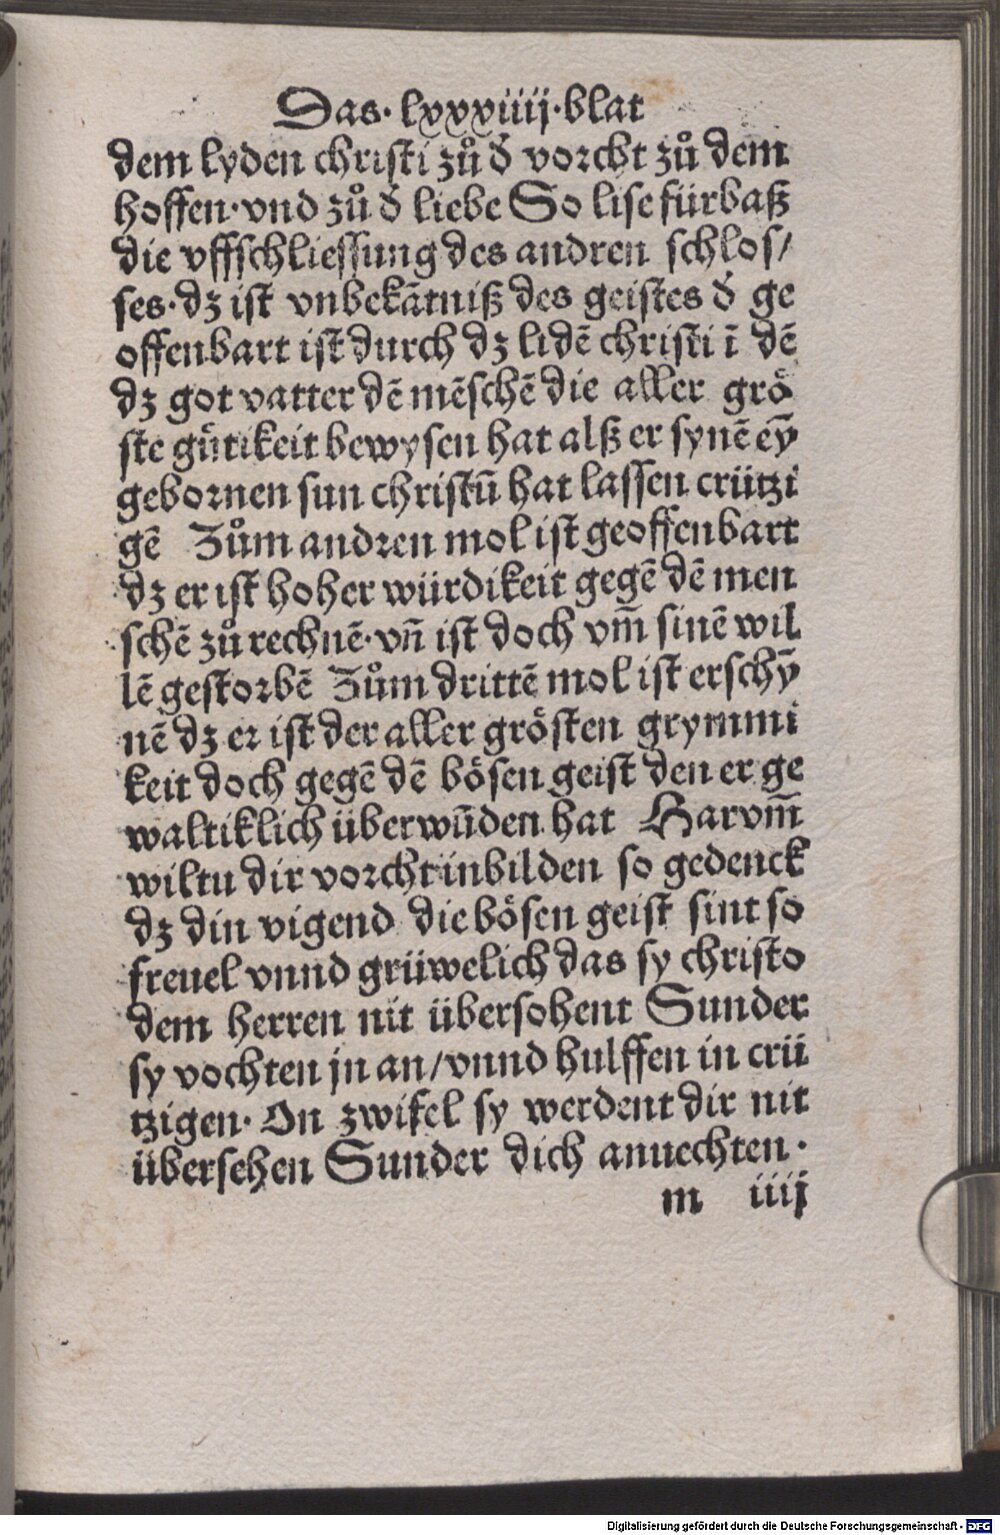 Das · lxxxiiij · blat
dem lyden christi zů d̕ vorcht zů dem
hoffen · vnd zů d̕ liebe So lise fürbaß
die vffschliessung des andren schlos/
ses · dz ist vnbekātniß des geistes d̕ ge
offenbart ist durch dz lidē christi ī dē
dz got vatter dē mēschē die aller grö
ste gütikeit bewysen hat alß er synē eȳ
gebornen sun christū hat lassen crützi
gē Zům andren mol ist geoffenbart
dz er ist hoher würdikeit gegē dē men
schē zů rechnē · vn̄ ist doch vm̄ sinē wil
lē gestorbē Zům drittē mol ist erschȳ
nē dz er ist der aller grösten grymmi
keit doch gegē dē bösen geist den er ge
waltiklich überwūden hat Harvm̄
wiltu dir vorcht inbilden so gedenck
dz din vigend die bösen geist sint so
freuel vnnd grüwelich das sy christo
dem herren nit übersohent Sunder
sy vochten jn an/vnnd hulffen in crü
tzigen · On zwifel sy werdent dir nit
übersehen Sunder dich anuechten ·
m iiij
Digitalisierung gefördert durch die Deutsche Forschungsgemeinschaft - DFG